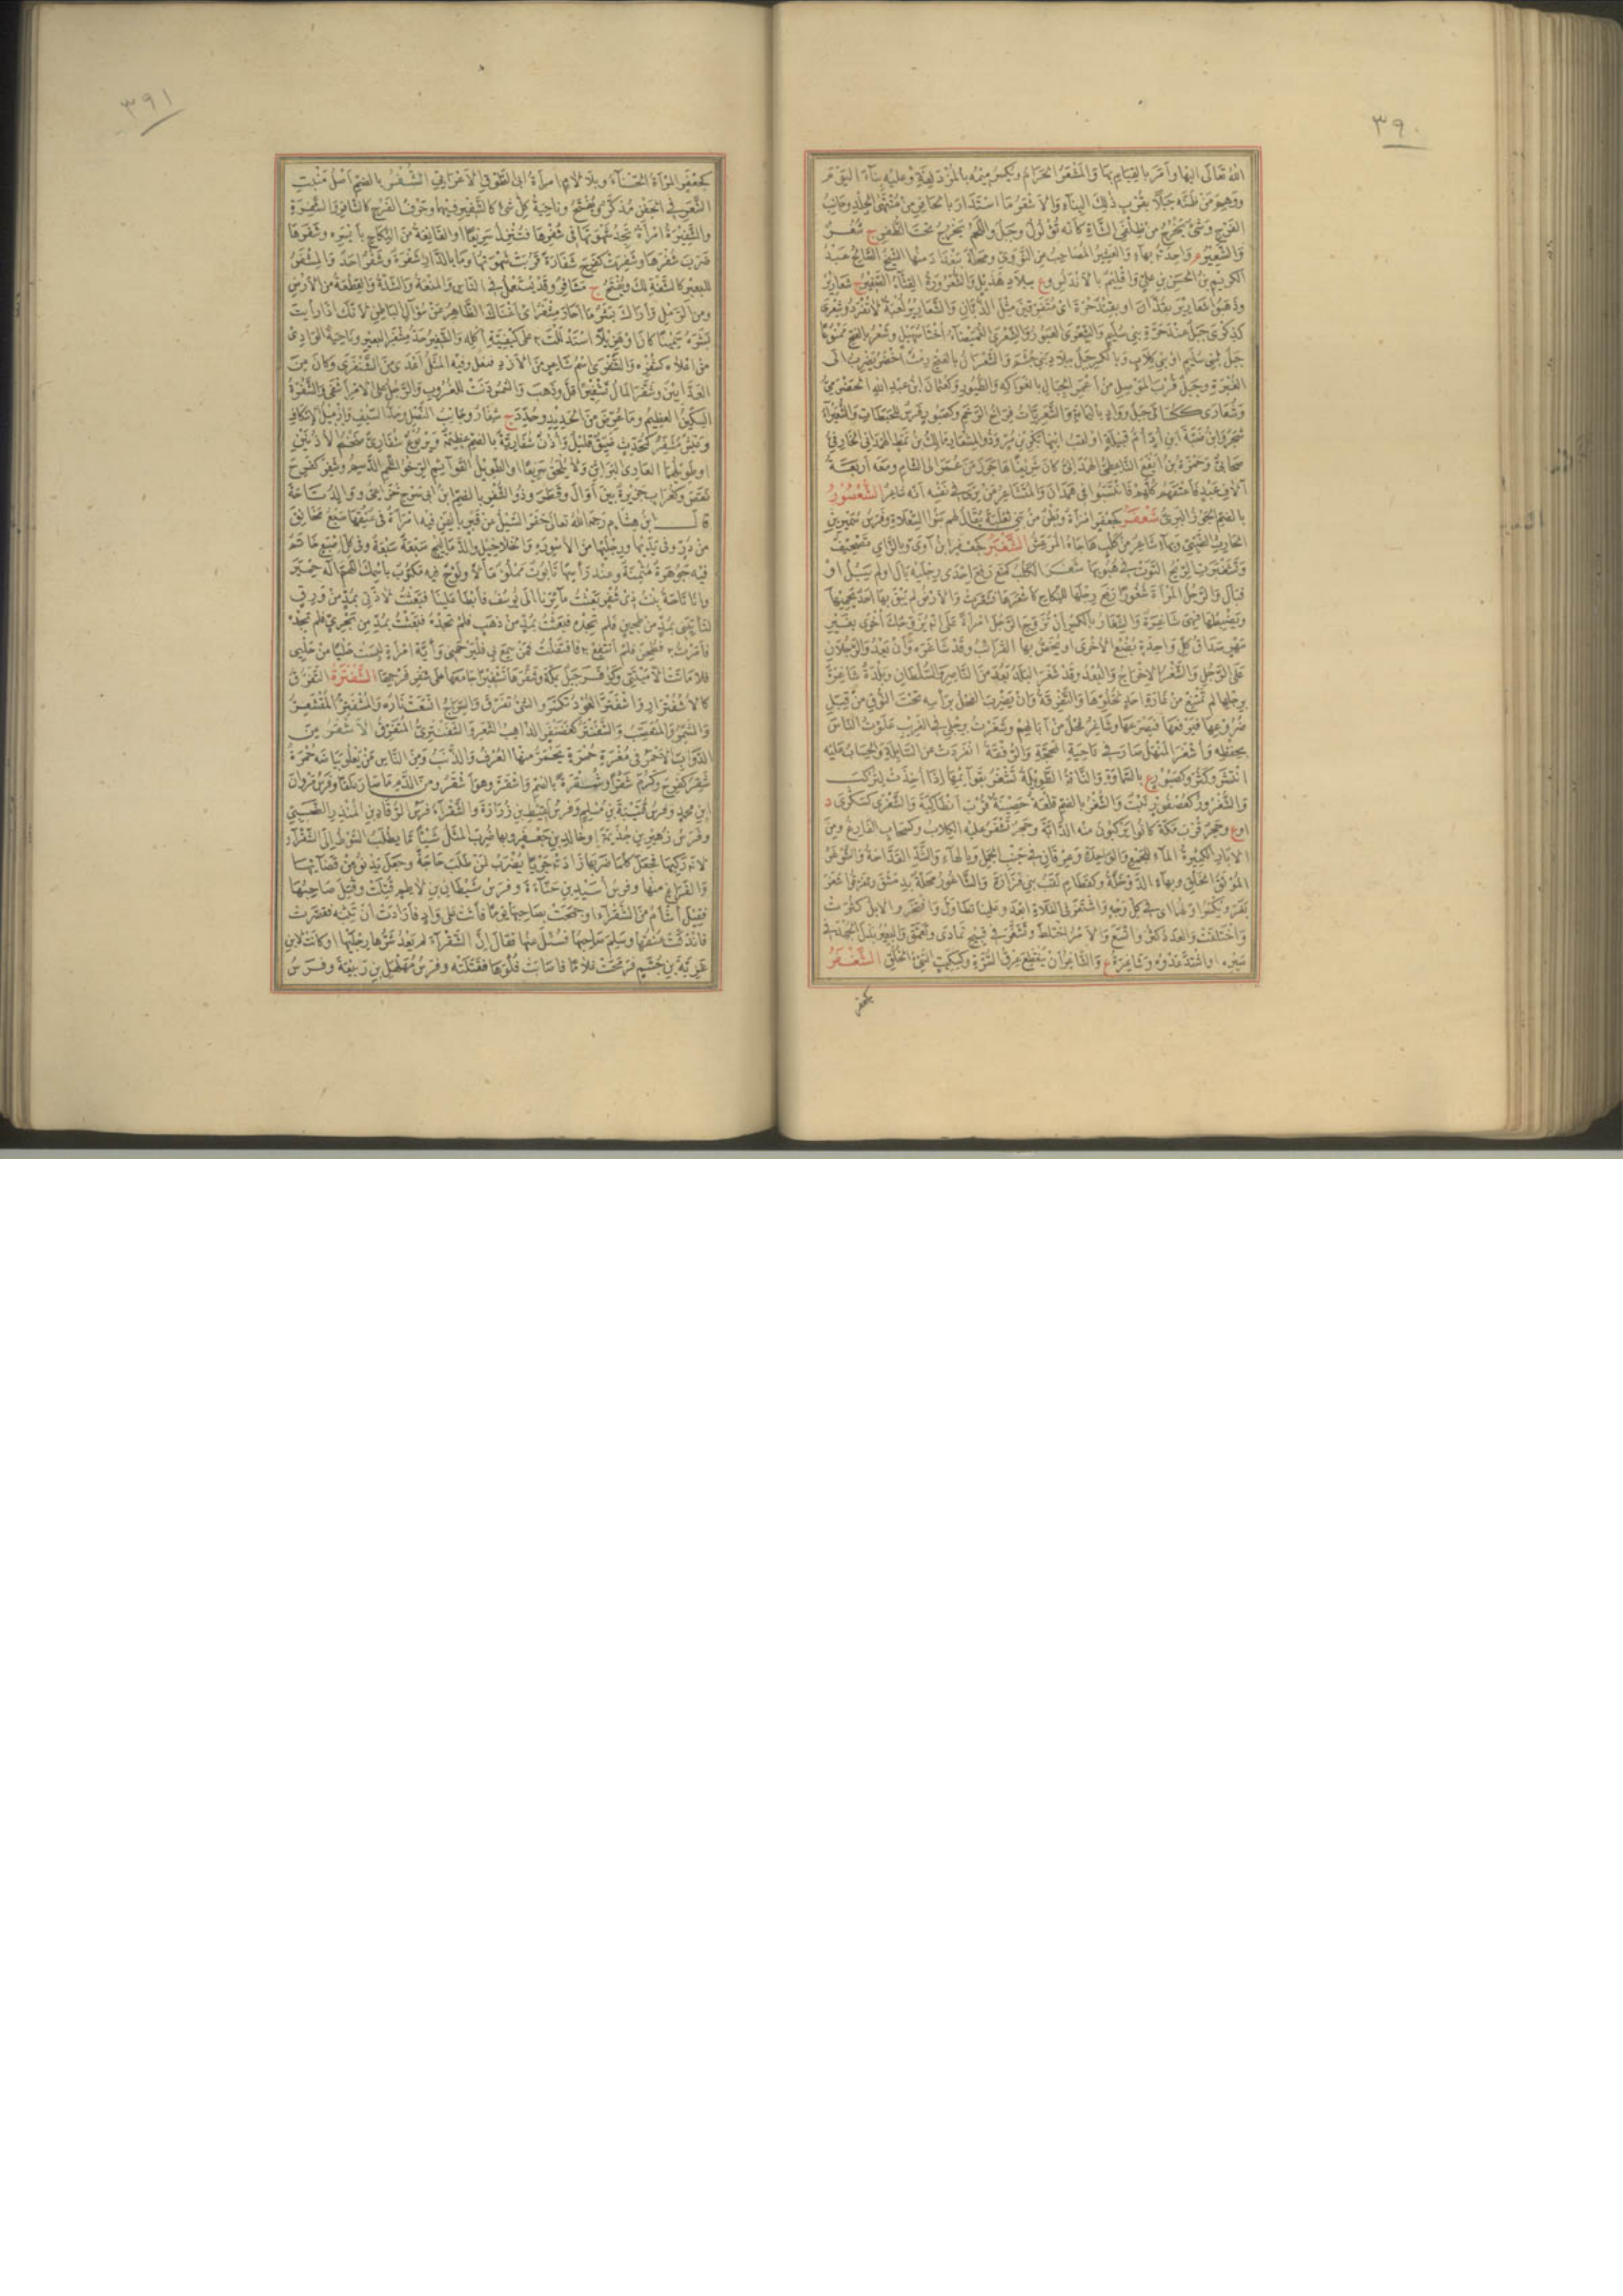 ٣٩٠
الله تعالى اليها وأمر بالقيام بها والمشعر الحرام وتكسر ميمه بالمزدلفة وعليه بناء اليوم
ووهم من ظنه جبلا بقرب ذلك البناء والأشعر ما استدار بالحافر من منتهى الجلد وجانب
الفرج وشئ يخرج من ظلفي الشاة كأنه ثؤلول وجبل واللحم يخرج تحت الظفر ج شعر
والشعير م واحدته بهاء والعشير المصاحب عن النووي ومحلة ببغداد منها الشيخ الصالح عبد
الكريم بن الحسن بن علي وإقليم بالأندلس وع ببلاد هذيل والشعرورة القثاء الصغير ج شعارير
وذهبوا شعارير بقذان أو بقندحرة أي متفرقين مثل الذبان والشعارير لعبة لا تفرد وشعرى
كذكرى جبل عند حرة بني سليم والشعرى العبور والشعرى الغميصاء أختا سهيل وشعر بالفتح ممنوعا
جبل لبني سليم أو بني كلاب وبالكسر جبل ببلاد بني جشم والشعران بالفتح رمث أخضر يضرب الى
الغبرة وجبل قرب الموصل من أعمر الجبال بالفواكه والطيور وكعثمان ابن عبد الله الحضرمي
وشعارى ككسالى جبل وواد باليمامة والشعريات فراخ الرخم وكصبور فرس للحبطات والشعيراء
شجر وابن ضبة ابن أد أم قبيلة أو لقب ابنها بكر بن مر وذو المشعار مالك بن نمط الهمداني الخارفي
صحابي وحمزة بن أيفع الناعطي الهمداني كان شريفا هاجر زمن عمر الى الشام ومعه أربعة
آلاف عبد فأعتقهم كلهم فانتسبوا في همدان والمتشاعر من يرى في نفسه أنه شاعر الشعصور
بالضم الجوز البري شعفر كجعفر امرأة وبطن من بني ثعلبة يقال لهم بنو السعلاة وفرس سمير بن
الحارث الضبي وبهاء شاعر من كلب هاجاه المرعش الشغبر كجعفر ابن آوى وبالزاي تصحيف
وتشغبرت الريح التوت في هبوبها شغر الكلب كمنع رفع احدى رجليه بال أو لم يبل أو
فبال والرجل المرأة شغورا رفع رجلها للنكاح كأشغرها فشغرت والأرض لم يبق بها أحد يحميها
ويضبطها فهي شاغرة والشغار بالكسر أن تزوج الرجل امرأة على أن يزوجك أخرى بغير
مهر صداق كل واحدة بضع الأخرى أو يخص بها القرائب وقد شاغره وأن يعدو الرجلان
على الرجل والشغر الاخراج والبعد وقد شغر البلد بعد من الناصر والسلطان وبلدة شاغرة
برجلها لم تمتنع من غارة أحد لخلوها والتفرقة وأن يضرب الفحل برأسه تحت النوق من قبل
ضروعها فيرفعها فيصرعها وشاغر فحل من آبالهم وشغرت برجلي في الغريب علوت الناس
بحفظه وأشغر المنهل صار في ناحية المحجة والرفقة انفردت عن السابلة والحساب عليه
انتشر وكثر وكصبور ع بالسماوة والناقة الطويلة تشغر بقوائمها إذا أخذت لتركب
والشغرور كعصفور نبت والشغر بالضم قلعة حصينة قرب أنطاكية والشغرى كسكرى د
أو ع وحجر قرب مكة كانوا يركبون منه الدابة وحجر تشغر عليه الكلاب وكسحاب الفارغ ومن
الآبار الكثيرة الماء للجمع والواحدة وعرقان في جنب الجمل وبالهاء والشد القداحة والشوغر
الموثق الخلق وبهاء الدوخلة وكقطام لقب بني فزارة والشاغور محلة بدمشق وتفرقوا شغر
بغر ويكسر أولهما أي في كل وجه واشتغر في الفلاة أبعد وعلينا تطاول وافتخر والابل كثرت
واختلفت والعدد كثر واتسع والأمر اختلط وتشغر في قبيح تمادى وتعمق والبعير بذل الجهد في
سيره أو اشتد عدوه وشاغرة ع والشاغران منقطع عرق السرة وككيت السيئ الخلق الشغفر
كجعفر
٣٩١
كجعفر المرأة الحسناء وبلا لام امرأة أبي الطوق الأعرابي الشفر بالضم أصل منبت
الشعر في الجفن مذكر ويفتح وناحية كل شئ كالشفير فيهما وحرف الفرج كالشافر والشفرة
والشفيرة امرأة تجد شهوتها في شفرها فتنزل سريعا أو القانعة من النكاح بأيسره وشفرها
ضرب شفرها وشفرت كفرح شفارة قربت شهوتها وما بالدار شفرة وشفر أحد والمشفر
للبعير كالشفة لك ويفتح ج مشافر وقد يستعمل في الناس والمنعة والشدة والقطعة من الأرض
ومن الرمل وأراك بشر ما أحار مشفر أي أغناك الظاهر عن سؤال الباطن لأنك اذا رأيت
بشره سمينا كان أو هزيلا استدللت به على كيفية أكله والشفير حد مشفر البعير وناحية الوادي
من أعلاه كشفره والشنفرى اسم شاعر من الأزد فنعلى وفيه المثل أعدى من الشنفرى وكان من
العدائين وشفر المال تشفيرا قل وذهب والشمس دنت للغروب والرجل على الأمر أشفى والشفرة
السكين العظيم وما عرض من الحديد وحدد ج شفار وجانب النصل وحد السيف وازميل الاسكاف
وعيش مشفر كمحدث ضيق قليل وأذن شفارية بالضم عظيمة ويربوع شفاري ضخم الأذنين
أو طويلهما العاري البراثن ولا يلحق سريعا أو الطويل القوائم الرخو اللحم الدسيم وشفر كفرح
نقص وكغراب جزيرة بين أوال وقطر وذو الشفر بالضم ابن أبي سرح خزاعي ووالد تاجة
قال ابن هشام رحمه الله تعالى حفر السيل عن قبر باليمن فيه امرأة في عنقها سبع مخانق
من در وفي يديها ورجليها من الأسورة والخلاخيل والدماليج سبعة سبعة وفي كل اصبع خاتم
فيه جوهرة مثمنة وعند رأسها تابوت مملوء مالا ولوح فيه مكتوب باسمك اللهم اله حمير
وأنا تاجة بنت ذي شفر بعثت مائرنا الى يوسف فأبطأ علينا فبعثت لاذتي بمد من ورق
لتأتيني بمد من طحين فلم تجده فبعثت بمد من ذهب فلم تجده فبعثت بمد من بحري فلم تجده
فأمرت به فطحن فلم أنتفع به فاقتفلت فمن سمع بي فليرحمني وأية امرأة لبست حليا من حليي
فلا ماتت الا ميتتي وكزفر جبل بمكة وشفرها تشفيرا جامعها على شفر فرجها الشفترة التفرق
كالاشفترار واشفتر العود تكسر والشئ تفرق والسراج اتسعت ناره والمشفتر المقشعر
والمشمر والمنتصب والشفنتر كغضنفر الذاهب الشعر والشفنترى المتفرق الأشقر من
الدواب الأحمر في مغرة حمرة يحمر منها العرف والذنب ومن الناس من يعلو بياضه حمرة
شقر كفرح وكرم شقرا وشقرة بالضم واشقر وهو أشقر ومن الدم ما صار علقا وفرس مروان
ابن محمد وفرس قتيبة بن مسلم وفرس لقيط بن زرارة والشقراء فرس الرقاد بن المنذر الضبي
وفرس زهير بن جذيمة أو خالد بن جعفر وبها ضرب المثل شيئا ما يطلب السوط الى الشقراء
لأنه ركبها فجعل كلما ضربها زادته جريا يضرب لمن طلب حاجة وجعل يدنو من قضائها
والفراغ منها وفرس أسيد بن حناءة وفرس شيطان بن لاطم قتلت وقتل صاحبها
فقيل أشأم من الشقراء أو جمحت بصاحبها يوما فأتت على واد فأرادت أن تثبه فقصرت
فاندقت عنقها وسلم صاحبها فسئل عنها فقال ان الشقراء لم يعد شرها رجليها أو كانت لابن
غزية بن جشم فرمحت غلاما فأصابت فلوها فقتلته وفرس مهلهل بن ربيعة وفرس